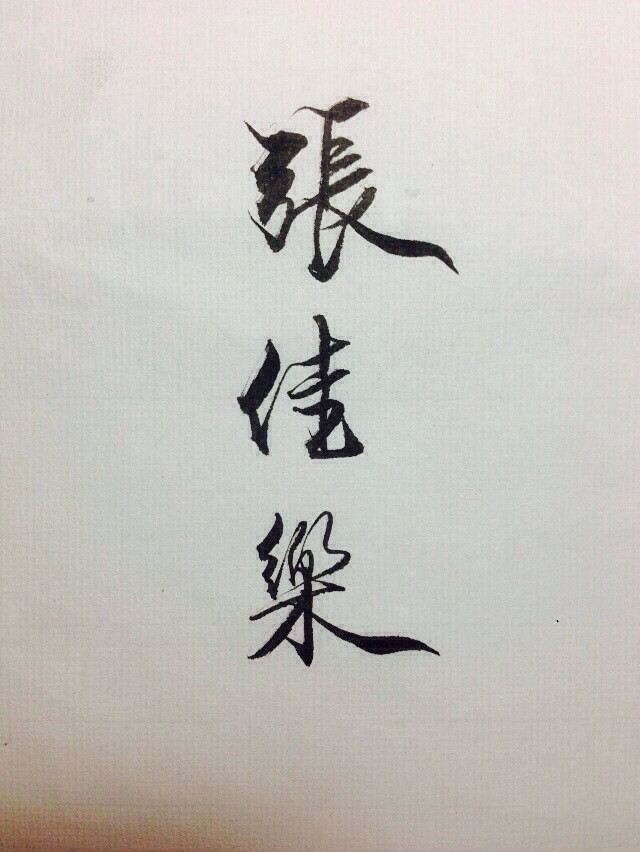 張佳樂